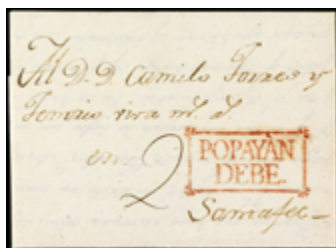 Al D. D. Camilo Torres y
Tenorio
en 2
POPAYÀN
DEBE.
Santafee